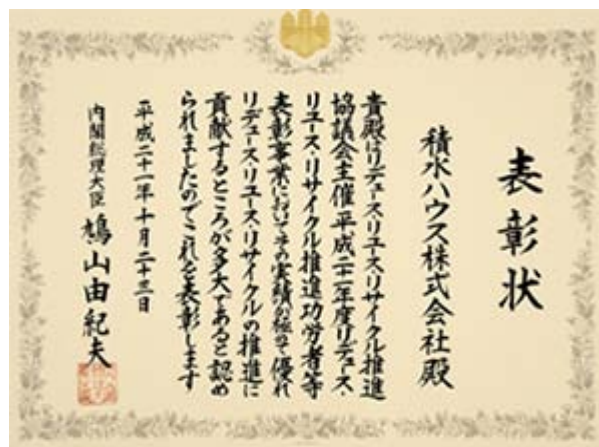 表彰状
積水ハウス株式会社殿
貴殿はリデュース・リユース・リサイクル推進
協議会主催平成二十一年度リデュース・
リユース・リサイクル推進功労者等
表彰事業においてその実績が極めて優れ
リデュース・リユース・リサイクルの推進に
貢献するところが多大であると認め
られましたのでこれを表彰します
平成二十一年十月二十三日
内閣総理大臣 鳩山由紀夫